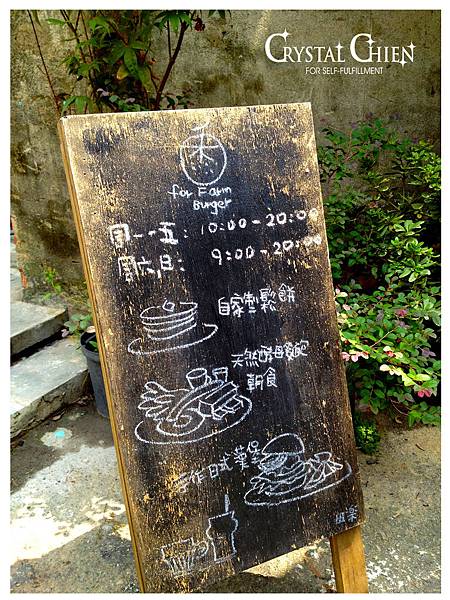 CRYSTAL CHIEN
FOR SELF-FULFILLMENT
for Farm
Burger
周一~五: 10:00-20:00
周六.日: 9:00-20:00
自家製鬆餅
天然酵母麵包
朝食
手作日式漢堡